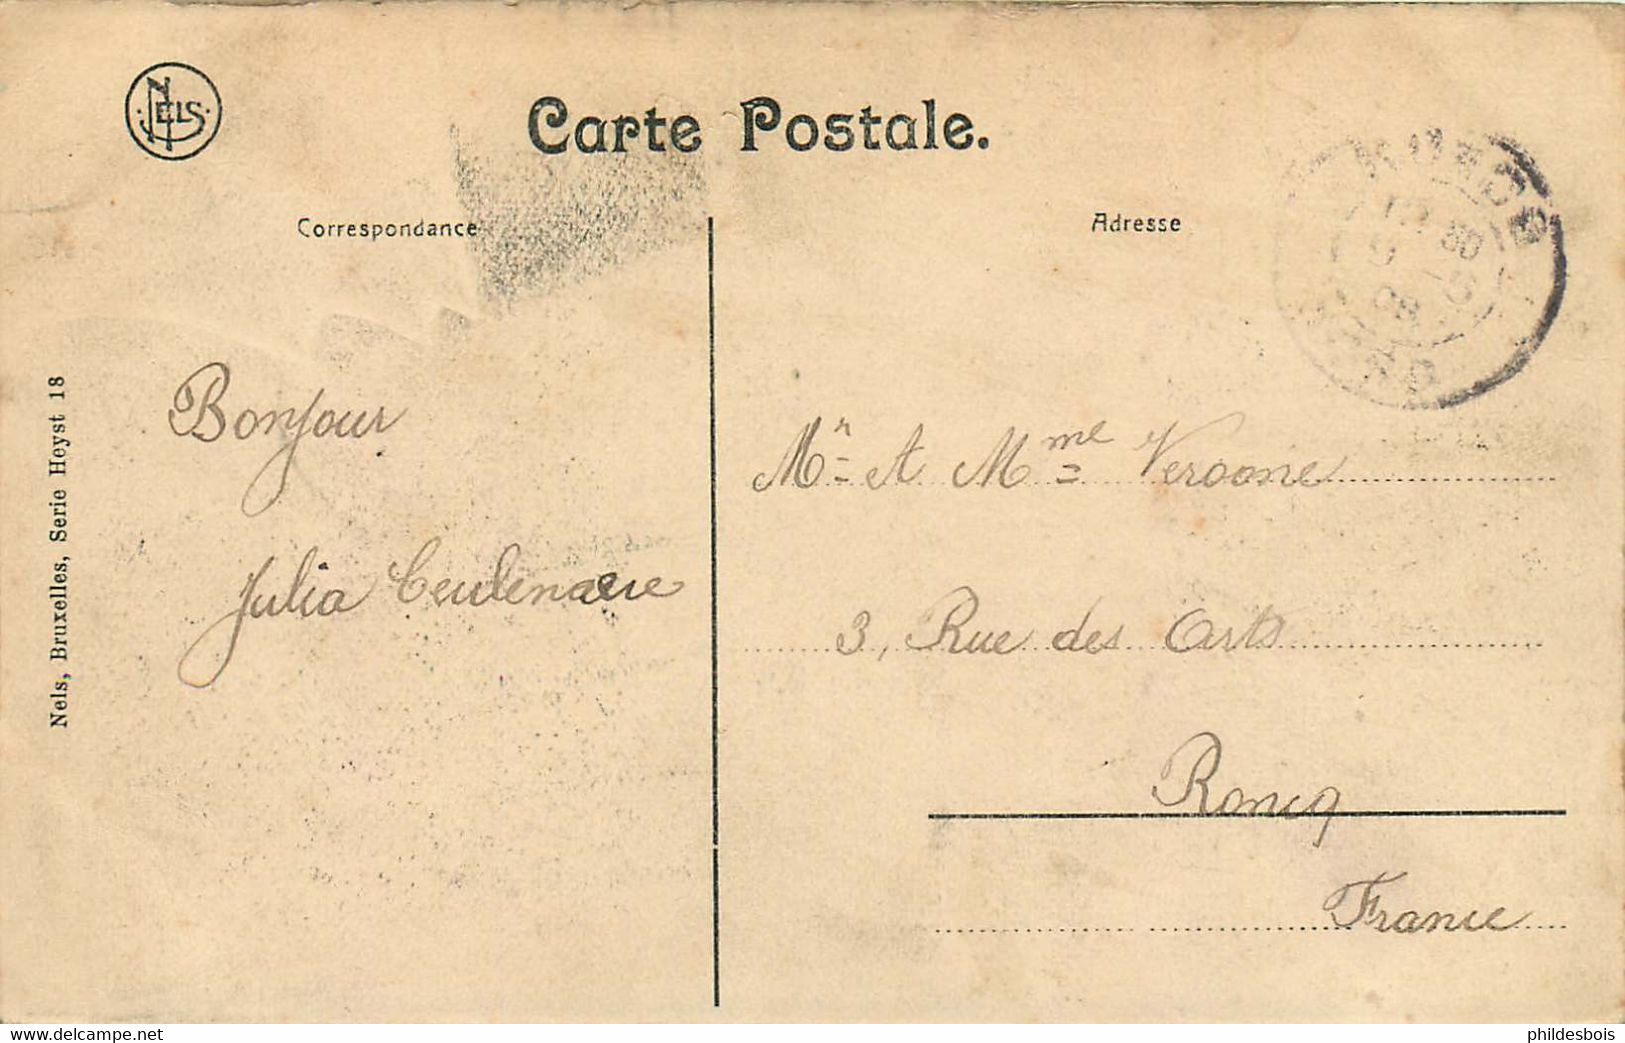 NELS
Carte Postale.
Correspondance
Adresse
Nels, Bruxelles, Serie Heyst 18
Bonjour
Julia Ceulenaere
Mr A Mme Veroone
3, Rue des Arts
Roncq
France
delcampe.net
phildesbois